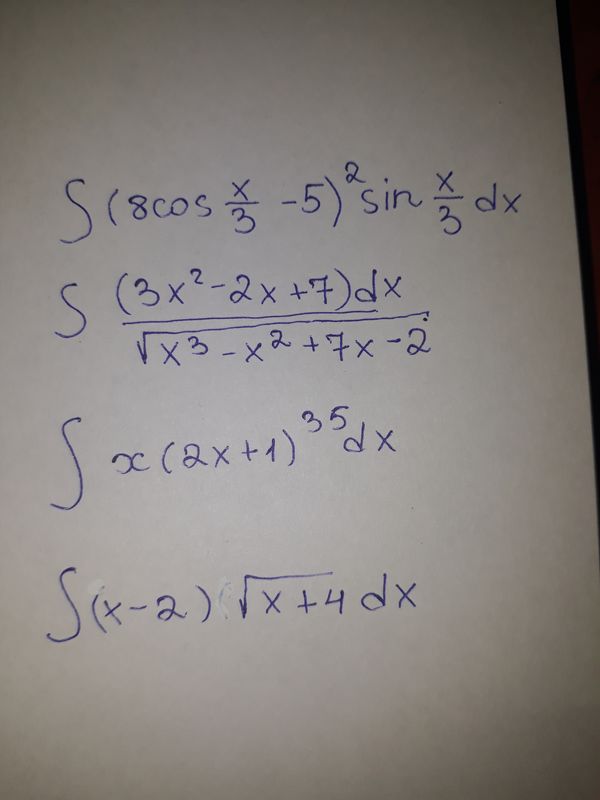 ∫ (8cos x/3 - 5)² sin x/3 dx
∫ (3x² - 2x + 7)dx / √(x³ - x² + 7x - 2)
∫ x(2x+1)³⁵ dx
∫ (x-2) √(x+4) dx